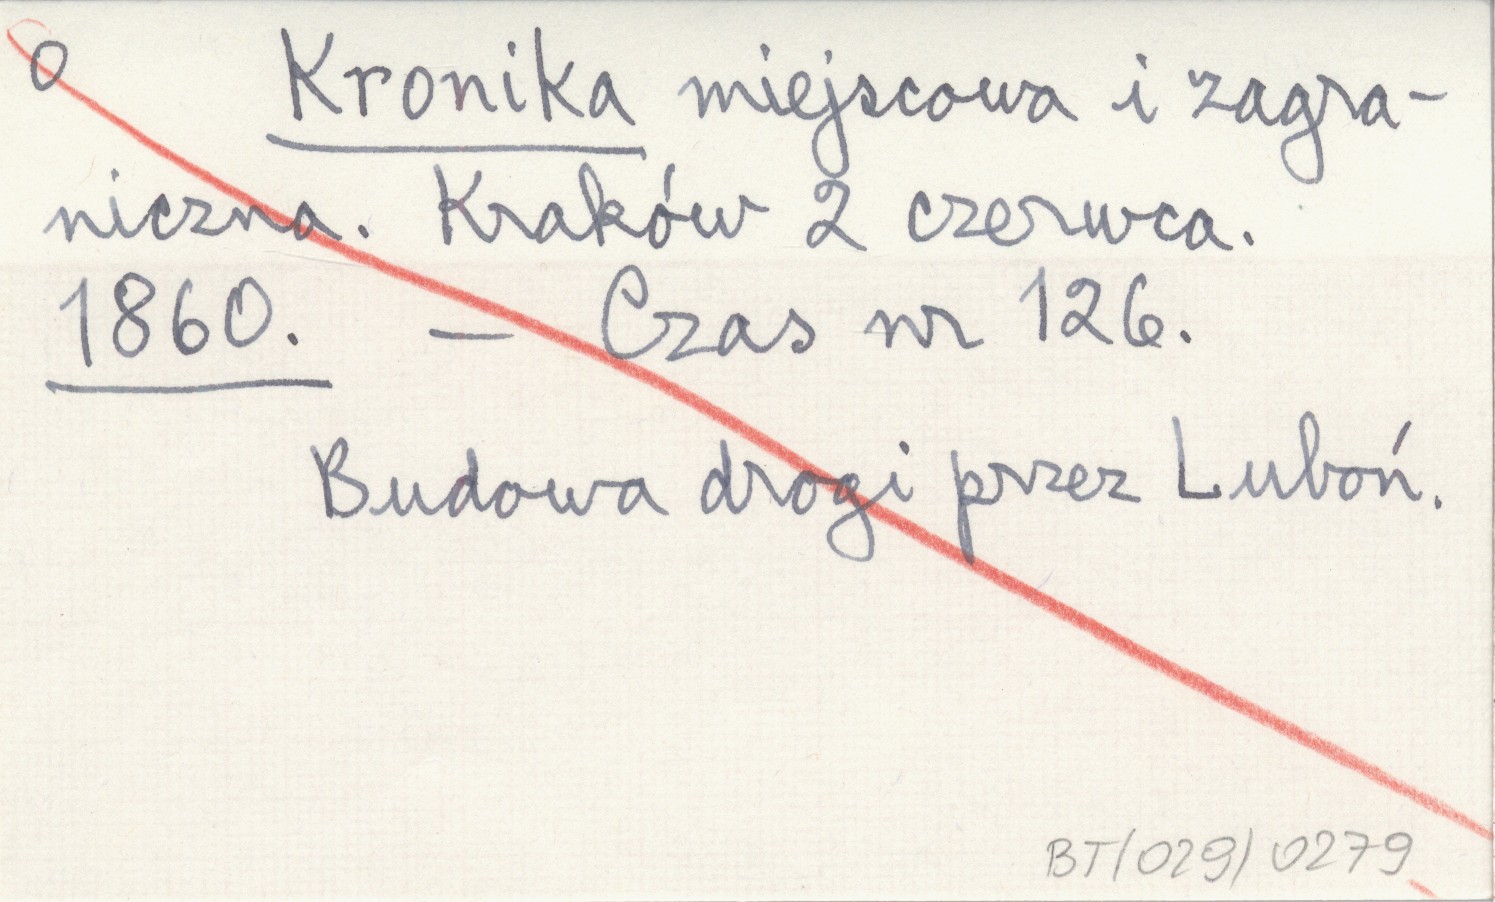 0 Kronika miejscowa i zagra-
niczna. Kraków 2 czerwca.
1860. — Czas nr 126.
Budowa drogi przez Luboń.
BT/029/0279